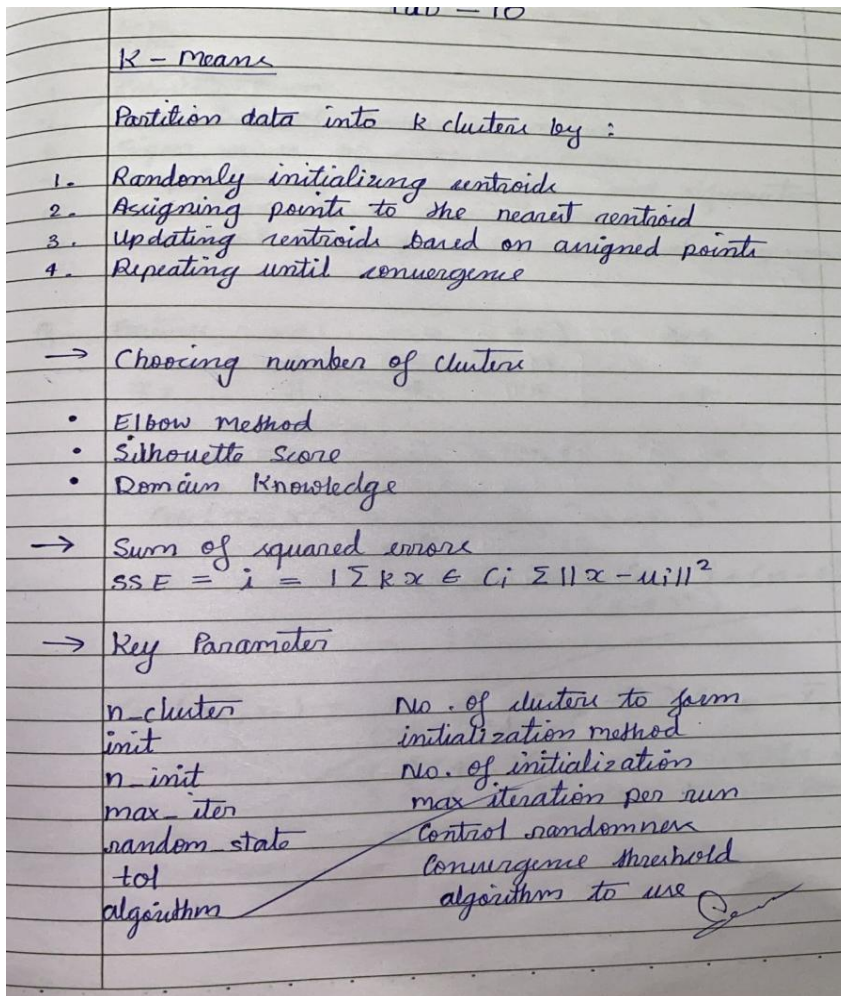 K - Means
Partition data into k clusters by :
1. Randomly initializing centroids
2. Assigning points to the nearest centroid
3. Updating centroids based on assigned points
4. Repeating until convergence
→ Choocing number of clusters
• Elbow method
• Silhouette Score
• Domain Knowledge
→ Sum of squared errors
SSE = i = 1 Σ k x ∈ Ci Σ || x - ui ||²
→ Key Parameter
n_cluster No. of clusters to form
init initialization method
n_init No. of initialization
max_iter max iteration per run
random state Control randomness
tol Convergence threshold
algorithm algorithm to use